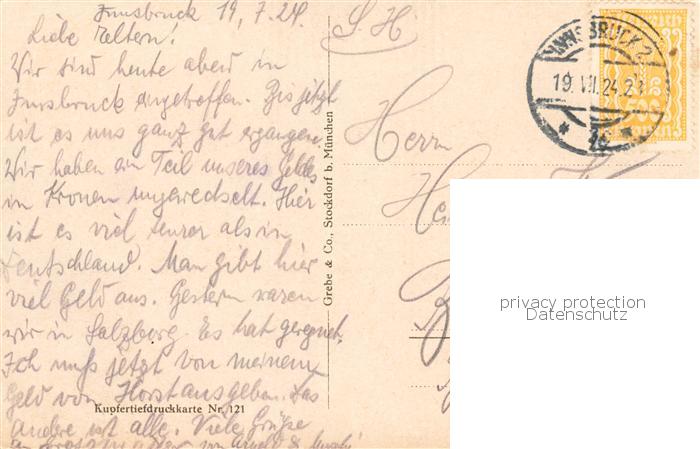 Innsbruck 19.7.24.
Liebe Eltern!
Wir sind heute abend in
Innsbruck eingetroffen. Bis jetzt
ist es uns ganz gut ergangen.
Wir haben ein Teil unseres Geldes
in Kronen umgewechselt. Hier
ist es viel teurer als in
Deutschland. Man gibt hier
viel Geld aus. Gestern waren
wir in Salzburg. Es hat geregnet.
Ich muß jetzt von meinem
Geld von Horst ausgeben. Das
Andere ist alle. Viele Grüße
von Arnold &
Kupfertiefdruckkarte Nr. 121
Grebe & Co., Stockdorf b. München
S. H.
Herrn
INNSBRUCK 2
19. VII. 24. 2
privacy protection
Datenschutz